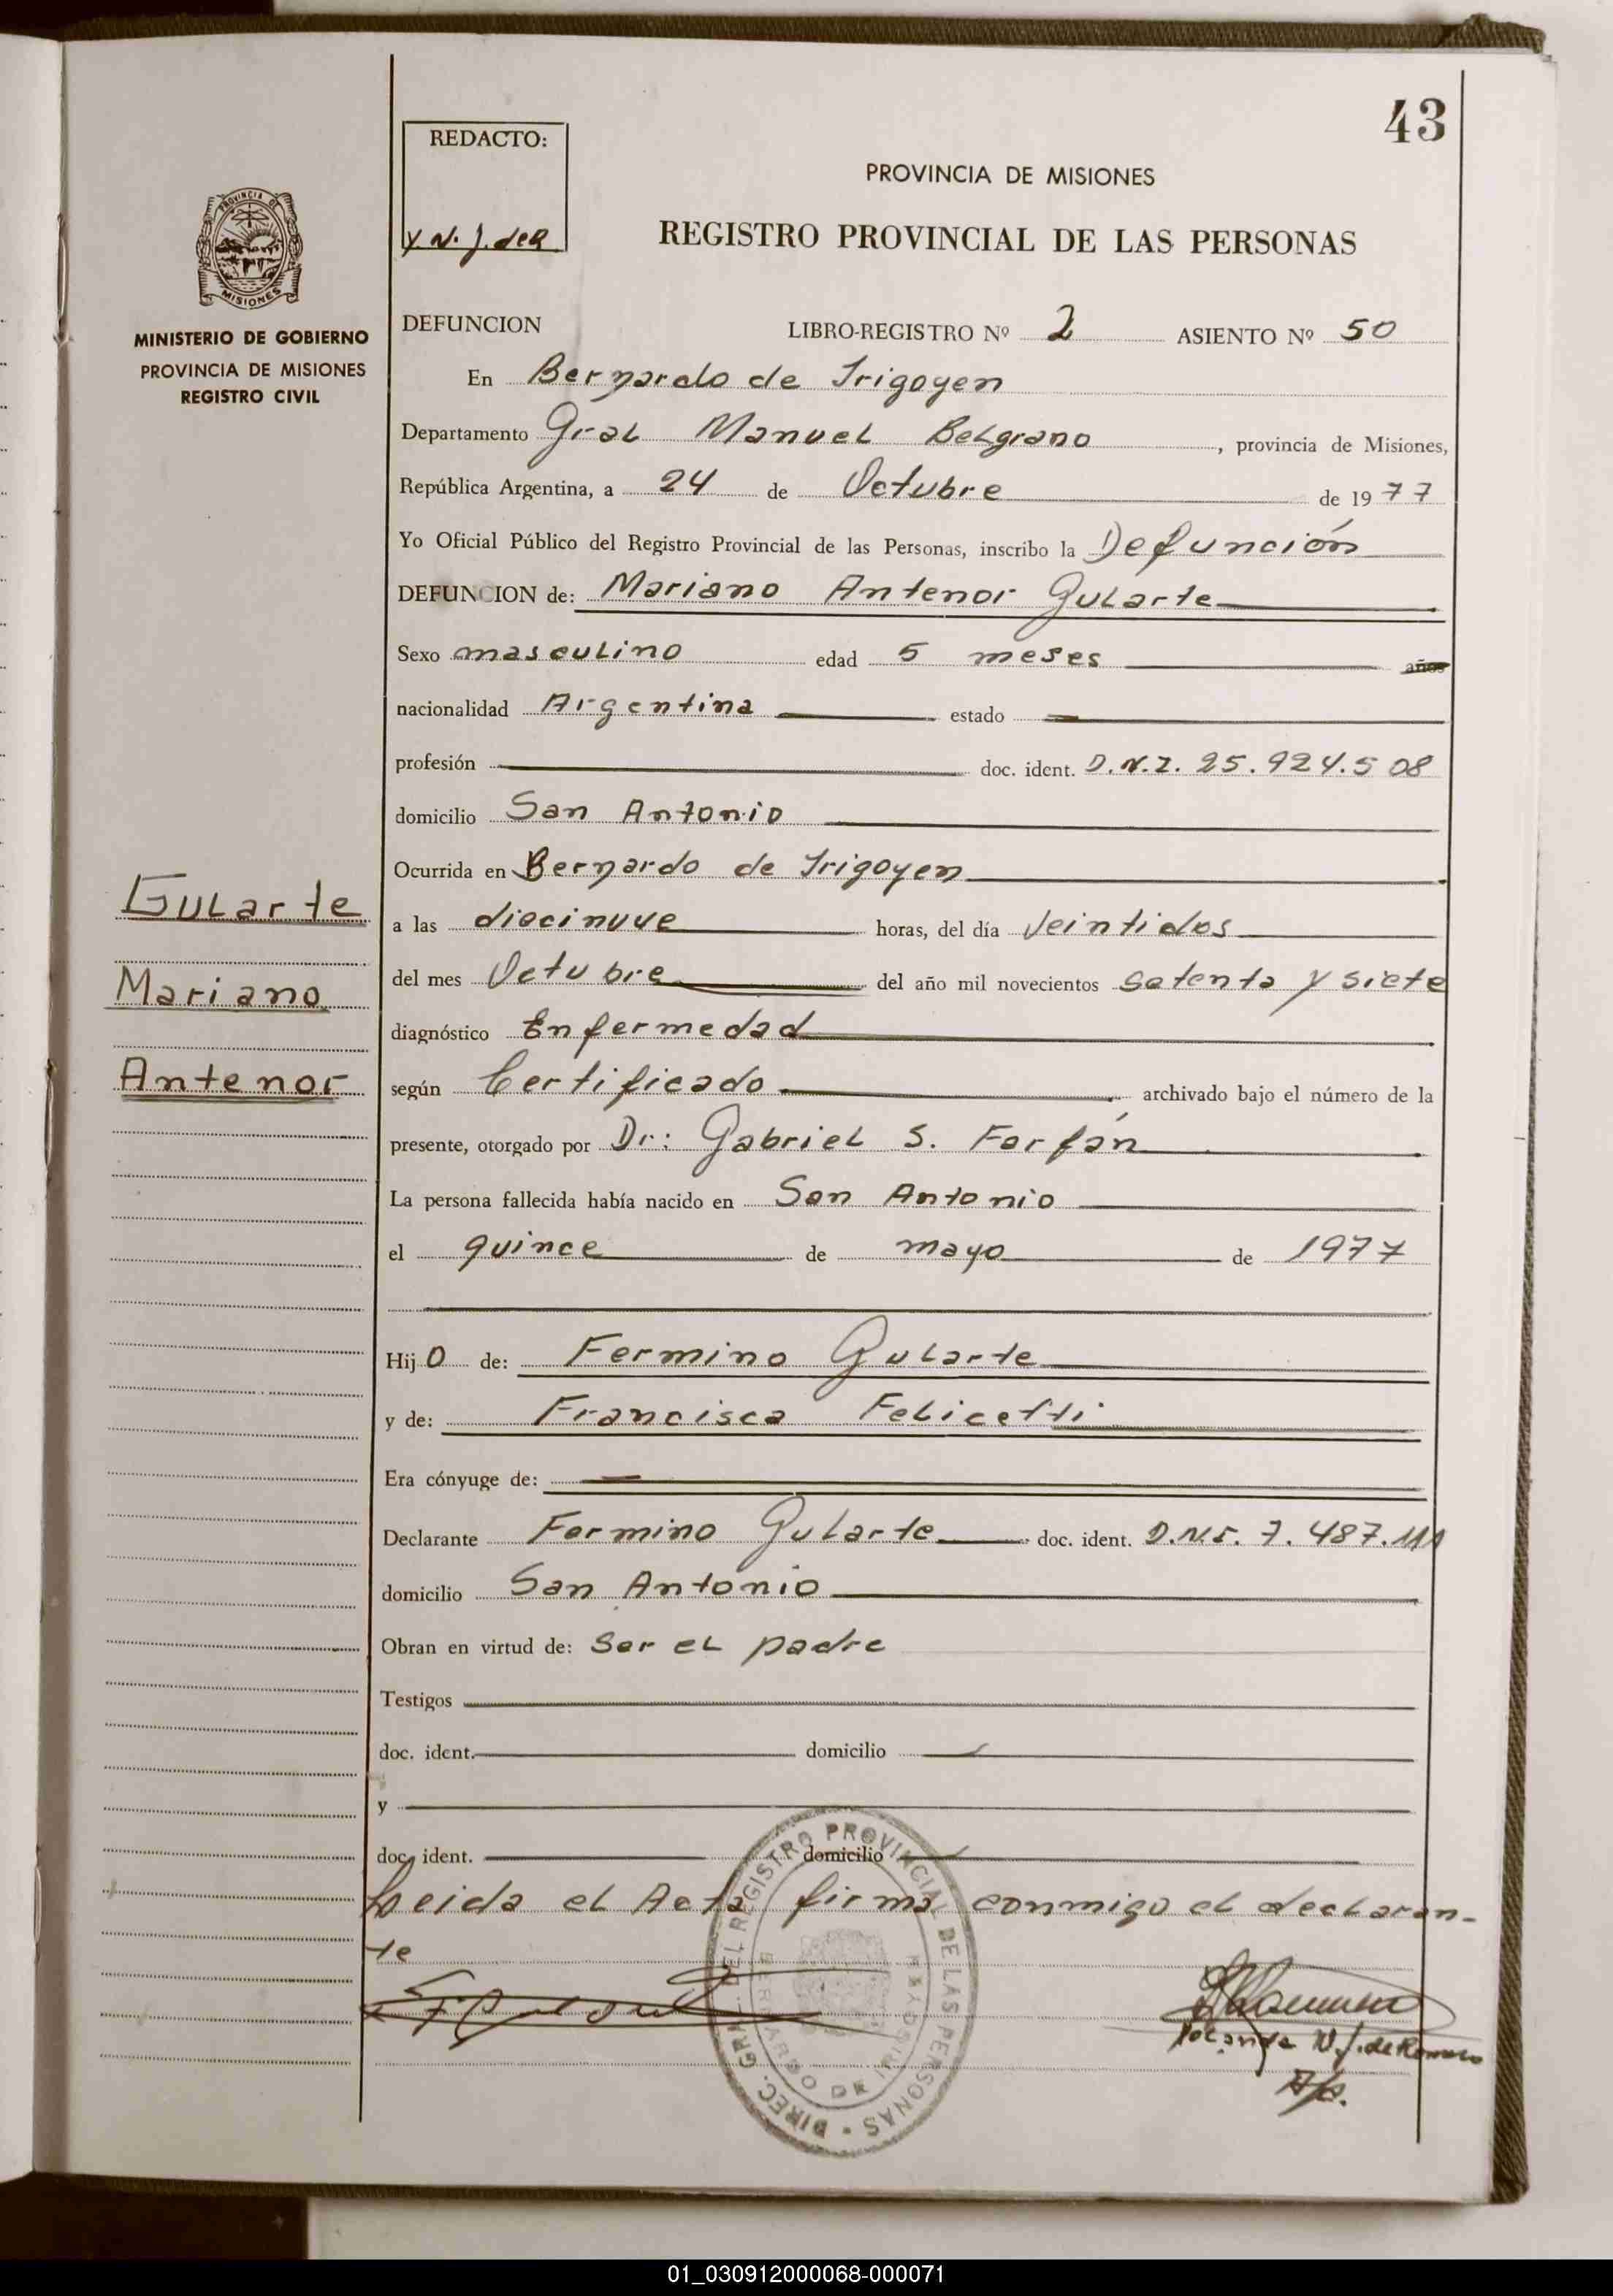 43
REDACTO:
Y N. J. de R
PROVINCIA DE MISIONES
REGISTRO PROVINCIAL DE LAS PERSONAS
PROVINCIA DE
MISIONES
MINISTERIO DE GOBIERNO
PROVINCIA DE MISIONES
REGISTRO CIVIL
DEFUNCION LIBRO-REGISTRO Nº 2 ASIENTO Nº 50
En Bernardo de Irigoyen
Departamento Gral Manuel Belgrano, provincia de Misiones,
República Argentina, a 24 de Octubre de 1977
Yo Oficial Público del Registro Provincial de las Personas, inscribo la Defunción
DEFUNCION de: Mariano Antenor Gularte
Sexo masculino edad 5 meses años
nacionalidad Argentina estado
profesión doc. ident. D.N.I. 25.924.508
domicilio San Antonio
Ocurrida en Bernardo de Irigoyen
Gularte
Mariano
Antenor
a las diecinuve horas, del día Veintidos
del mes Octubre del año mil novecientos setenta y siete
diagnóstico Enfermedad
según Certificado archivado bajo el número de la
presente, otorgado por Dr: Gabriel S. Farfán
La persona fallecida había nacido en San Antonio
el quince de mayo de 1977
Hijo de: Fermino Gularte
y de: Francisca Felicetti
Era cónyuge de:
Declarante Fermino Gularte doc. ident. D.N.I. 7.487.111
domicilio San Antonio
Obran en virtud de: Ser el padre
Testigos
doc. ident. domicilio
y
doc. ident. domicilio
Leida el Acta firma conmigo el declaran-
te
DIREC. GRAL. DEL REGISTRO PROVINCIAL DE LAS PERSONAS
BERNARDO DE IRIGOYEN
Yolanda N. J. de Romero
01_030912000068-000071